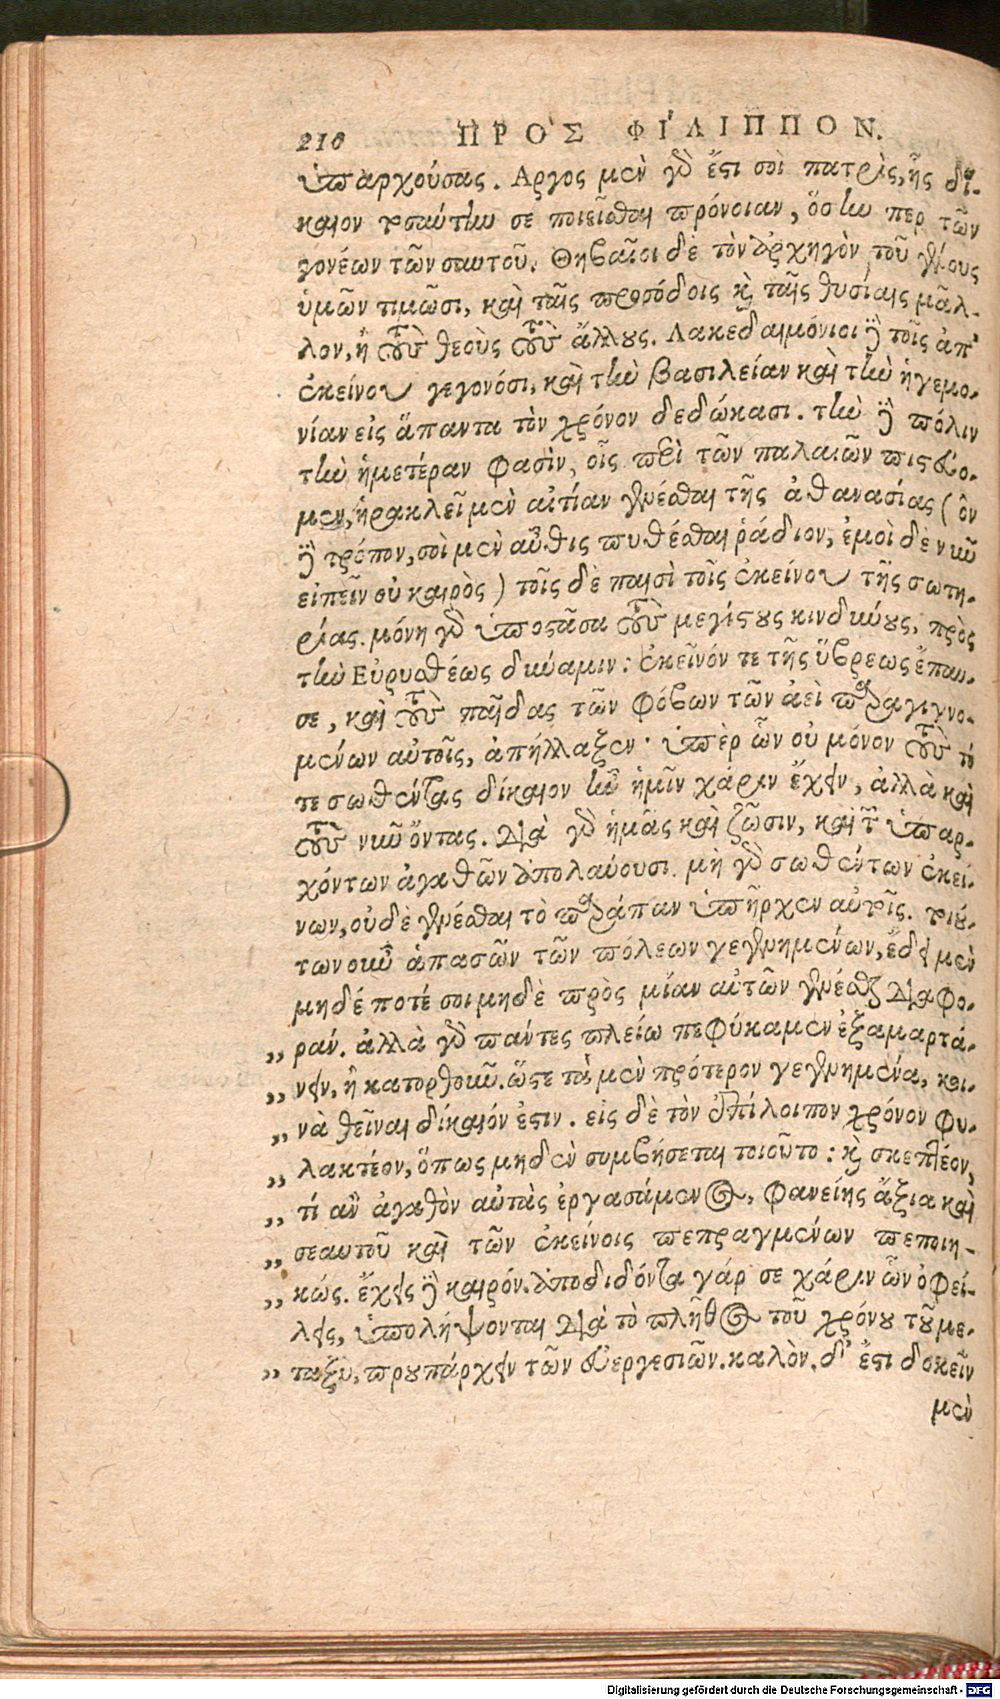 210 ΠΡῸΣ ΦΊΛΙΠΠΟΝ.
ὑπαρχούσας. Αργος μὲν γὸ ἔςι σοὶ πατρὶς, ἧς δί-
καιον τοσαύτην σε ποιεῖσθαι πρόνοιαν, ὅσην περ τῶν
γονέων τῶν σαυτοῦ. Θηβαῖοι δὲ τὸν ἀρχηγὸν τοῦ γένους
ὑμῶν τιμῶσι, καὶ ταῖς προσόδοις κ̀ ταῖς θυσίαις μᾶλ-
λον, ἢ τοὺς θεοὺς τοὺς ἄλλους. Λακεδαιμόνιοι δὲ τοῖς ἀπ'
ἐκείνου γεγονόσι, καὶ τὴν βασιλείαν καὶ τὴν ἡγεμο-
νίαν εἰς ἅπαντα τὸν χρόνον δεδώκασι. τὴν δὲ πόλιν
τὴν ἡμετέραν φασὶν, οἷς περὶ τῶν παλαιῶν πιςεύο-
μεν, ἡρακλεῖ μὲν αἰτίαν γενέσθαι τῆς ἀθανασίας (ὃν
δὲ τρόπον, σοὶ μὲν αὖθις πυθέσθαι ῥάδιον, ἐμοὶ δὲ νῦν
εἰπεῖν οὐ καιρὸς) τοῖς δὲ παισὶ τοῖς ἐκείνου τῆς σωτη-
ρίας. μόνη γὸ ὑποςᾶσα τοὺς μεγίςους κινδύνους, πρὸς
τὴν Εὐρυσθέως δύναμιν: ἐκεῖνόν τε τῆς ὕβρεως ἔπαυ-
σε, καὶ τοὺς παῖδας τῶν φόβων τῶν ἀεὶ παραγιγνο-
μένων αὐτοῖς, ἀπήλλαξεν· ὑπὲρ ὧν οὐ μόνον τοὺς τό
τε σωθέντας δίκαιον ἦν ἡμῖν χάριν ἔχειν, ἀλλὰ καὶ
τοὺς νῦν ὄντας. διὰ γὸ ἡμᾶς καὶ ζῶσιν, καὶ τῶν ὑπαρ-
χόντων ἀγαθῶν ἀπολαύουσι. μὴ γὸ σωθέντων ἐκεί-
νων, οὐδὲ γενέσθαι τὸ παράπαν ὑπῆρχεν αὐτοῖς. τοιού-
των οὖν ἁπασῶν τῶν πόλεων γεγενημένων, ἔδει μὲν
μηδέ ποτέ σοι μηδὲ πρὸς μίαν αὐτῶν γενέσθαι διαφο-
„ ράν. ἀλλὰ γὸ πάντες πλείω πεφύκαμεν ἐξαμαρτά-
„ νειν, ἢ κατορθοῦν. ὥςε τὰ μὲν πρότερον γεγενημένα, κοι-
„ νὰ θεῖναι δίκαιόν ἐςιν. εἰς δὲ τὸν ἐπίλοιπον χρόνον φυ-
„ λακτέον, ὅπως μηδὲν συμβήσεται τοιοῦτο: κ̀ σκεπτέον,
„ τί ἂν ἀγαθὸν αὐτὰς ἐργασάμενος, φανείης ἄξια καὶ
„ σεαυτοῦ καὶ τῶν ἐκείνοις πεπραγμένων πεποιη-
„ κώς. ἔχεις δὲ καιρόν. ἀποδιδόντα γάρ σε χάριν ὧν ὀφεί-
λεις, ὑπολήψονται διὰ τὸ πλῆθος τοῦ χρόνου τοῦ με-
„ ταξὺ, προυπάρχειν τῶν εὐεργεσιῶν. καλὸν. δ' ἔςι δοκεῖν
μὲν
Digitalisierung gefördert durch die Deutsche Forschungsgemeinschaft - DFG